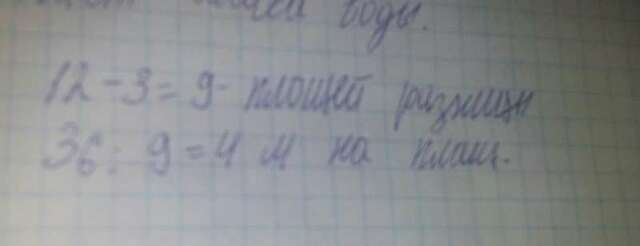 воды.
12-3=9- площей разницы
36: 9=4 м на плащ.